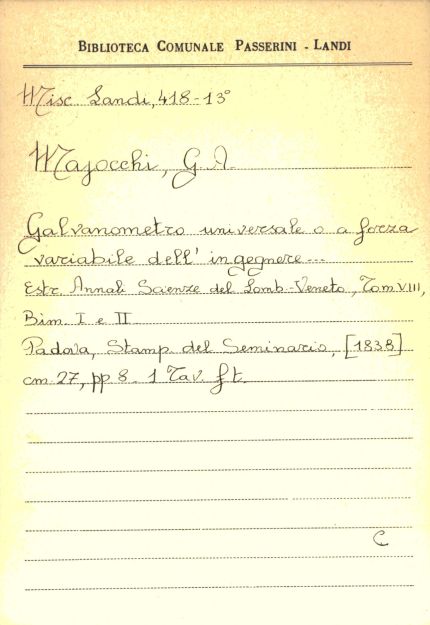 BIBLIOTECA COMUNALE PASSERINI - LANDI
Misc. Landi, 418-13°
Majocchi, G. A.
Galvanometro universale o a forza
variabile dell' ingegnere...
Estr. Annali Scienze del Lomb-Veneto, Tom. VIII,
Bim. I e II
Padova, Stamp. del Seminario, [1838]
cm. 27, pp 8. 1 Tav. f t.
C